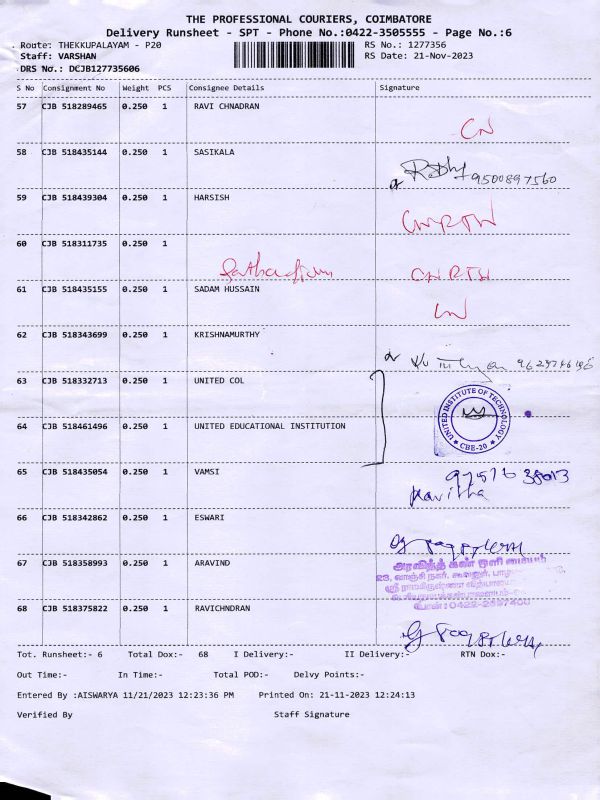 THE PROFESSIONAL COURIERS, COIMBATORE
Delivery Runsheet - SPT - Phone No.:0422-3505555 - Page No.:6
Route: THEKKUPALAYAM - P20 RS No.: 1277356
Staff: VARSHAN RS Date: 21-Nov-2023
DRS No.: DCJB127735606
S No Consignment No Weight PCS Consignee Details Signature
57 CJB 518289465 0.250 1 RAVI CHNADRAN
58 CJB 518435144 0.250 1 SASIKALA
9500897560
59 CJB 518439304 0.250 1 HARSISH
60 CJB 518311735 0.250 1
61 CJB 518435155 0.250 1 SADAM HUSSAIN
62 CJB 518343699 0.250 1 KRISHNAMURTHY
63 CJB 518332713 0.250 1 UNITED COL
UNITED INSTITUTE OF TECHNOLOGY
★ CBE-20 ★
64 CJB 518461496 0.250 1 UNITED EDUCATIONAL INSTITUTION
65 CJB 518435054 0.250 1 VAMSI
Kavitha
66 CJB 518342862 0.250 1 ESWARI
67 CJB 518358993 0.250 1 ARAVIND
அரவிந்த் கண் ஒளி மையம்
68 CJB 518375822 0.250 1 RAVICHNDRAN
Tot. Runsheet:- 6 Total Dox:- 68 I Delivery:- II Delivery:- RTN Dox:-
Out Time:- In Time:- Total POD:- Delvy Points:-
Entered By :AISWARYA 11/21/2023 12:23:36 PM Printed On: 21-11-2023 12:24:13
Verified By Staff Signature